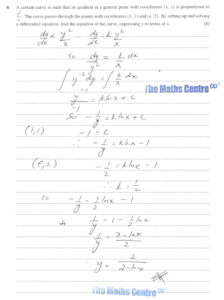 6 A certain curve is such that its gradient at a general point with coordinates (x, y) is proportional to
y²/x. The curve passes through the points with coordinates (1, 1) and (e, 2). By setting up and solving
a differential equation, find the equation of the curve, expressing y in terms of x. [8]
dy/dx ∝ y²/x dy/dx = k y²/x
so dy/y² = k/x dx
∫ y⁻² dy = ∫ k/x dx
y⁻¹/-1 = k ln x + c
The Maths Centre
so -1/y = k ln x + c
(1,1) -1 = c
∴ -1/y = k ln x - 1
(e,2) -1/2 = k ln e - 1
∴ k = 1/2
so -1/y = 1/2 ln x - 1
so 1/y = 1 - 1/2 ln x
1/y = 2 - ln x/2
∴ y = 2/2 - ln x
The Maths Centre